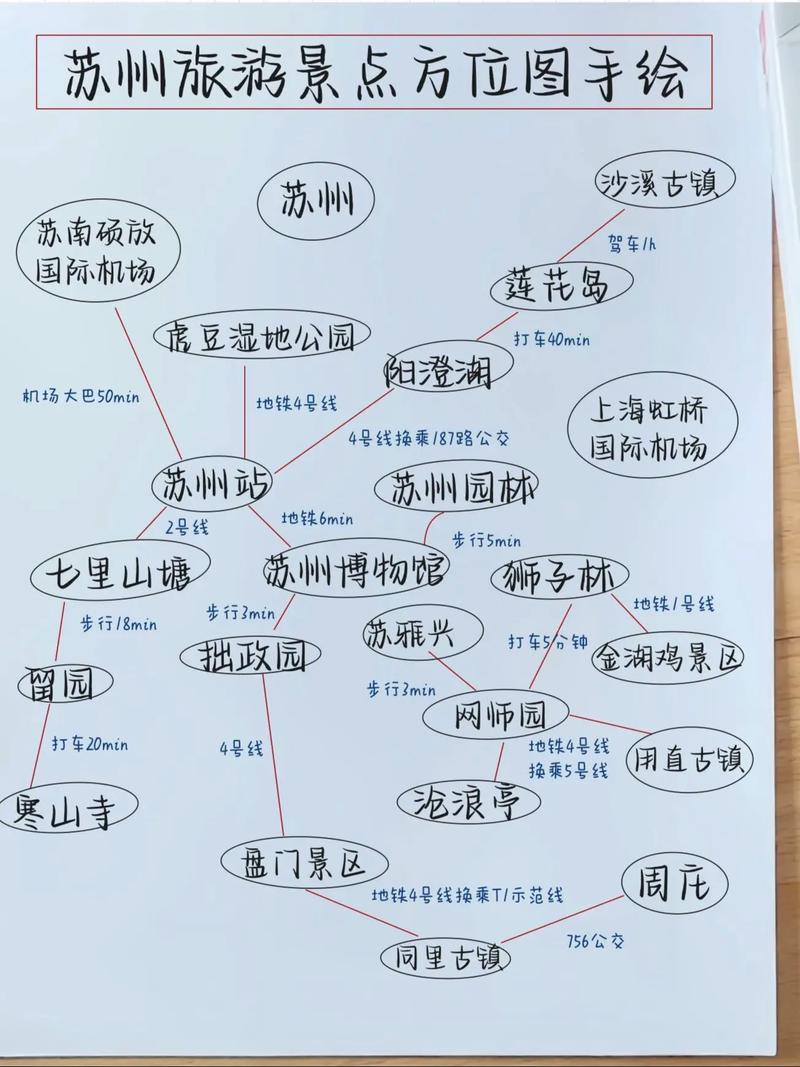 苏州旅游景点方位图手绘
苏州
沙溪古镇
苏南硕放
国际机场
驾车1h
莲花岛
虎豆湿地公园
打车40min
阳澄湖
机场大巴50min
地铁4号线
上海虹桥
国际机场
4号线换乘187路公交
苏州站
苏州园林
2号线
地铁6min
步行5min
七里山塘
苏州博物馆
狮子林
地铁1号线
步行18min
步行3min
苏雅兴
打车5分钟
拙政园
金湖鸡景区
留园
步行3min
网师园
打车20min
4号线
地铁4号线
换乘5号线
用直古镇
寒山寺
沧浪亭
盘门景区
周庄
地铁4号线换乘T1示范线
756公交
同里古镇